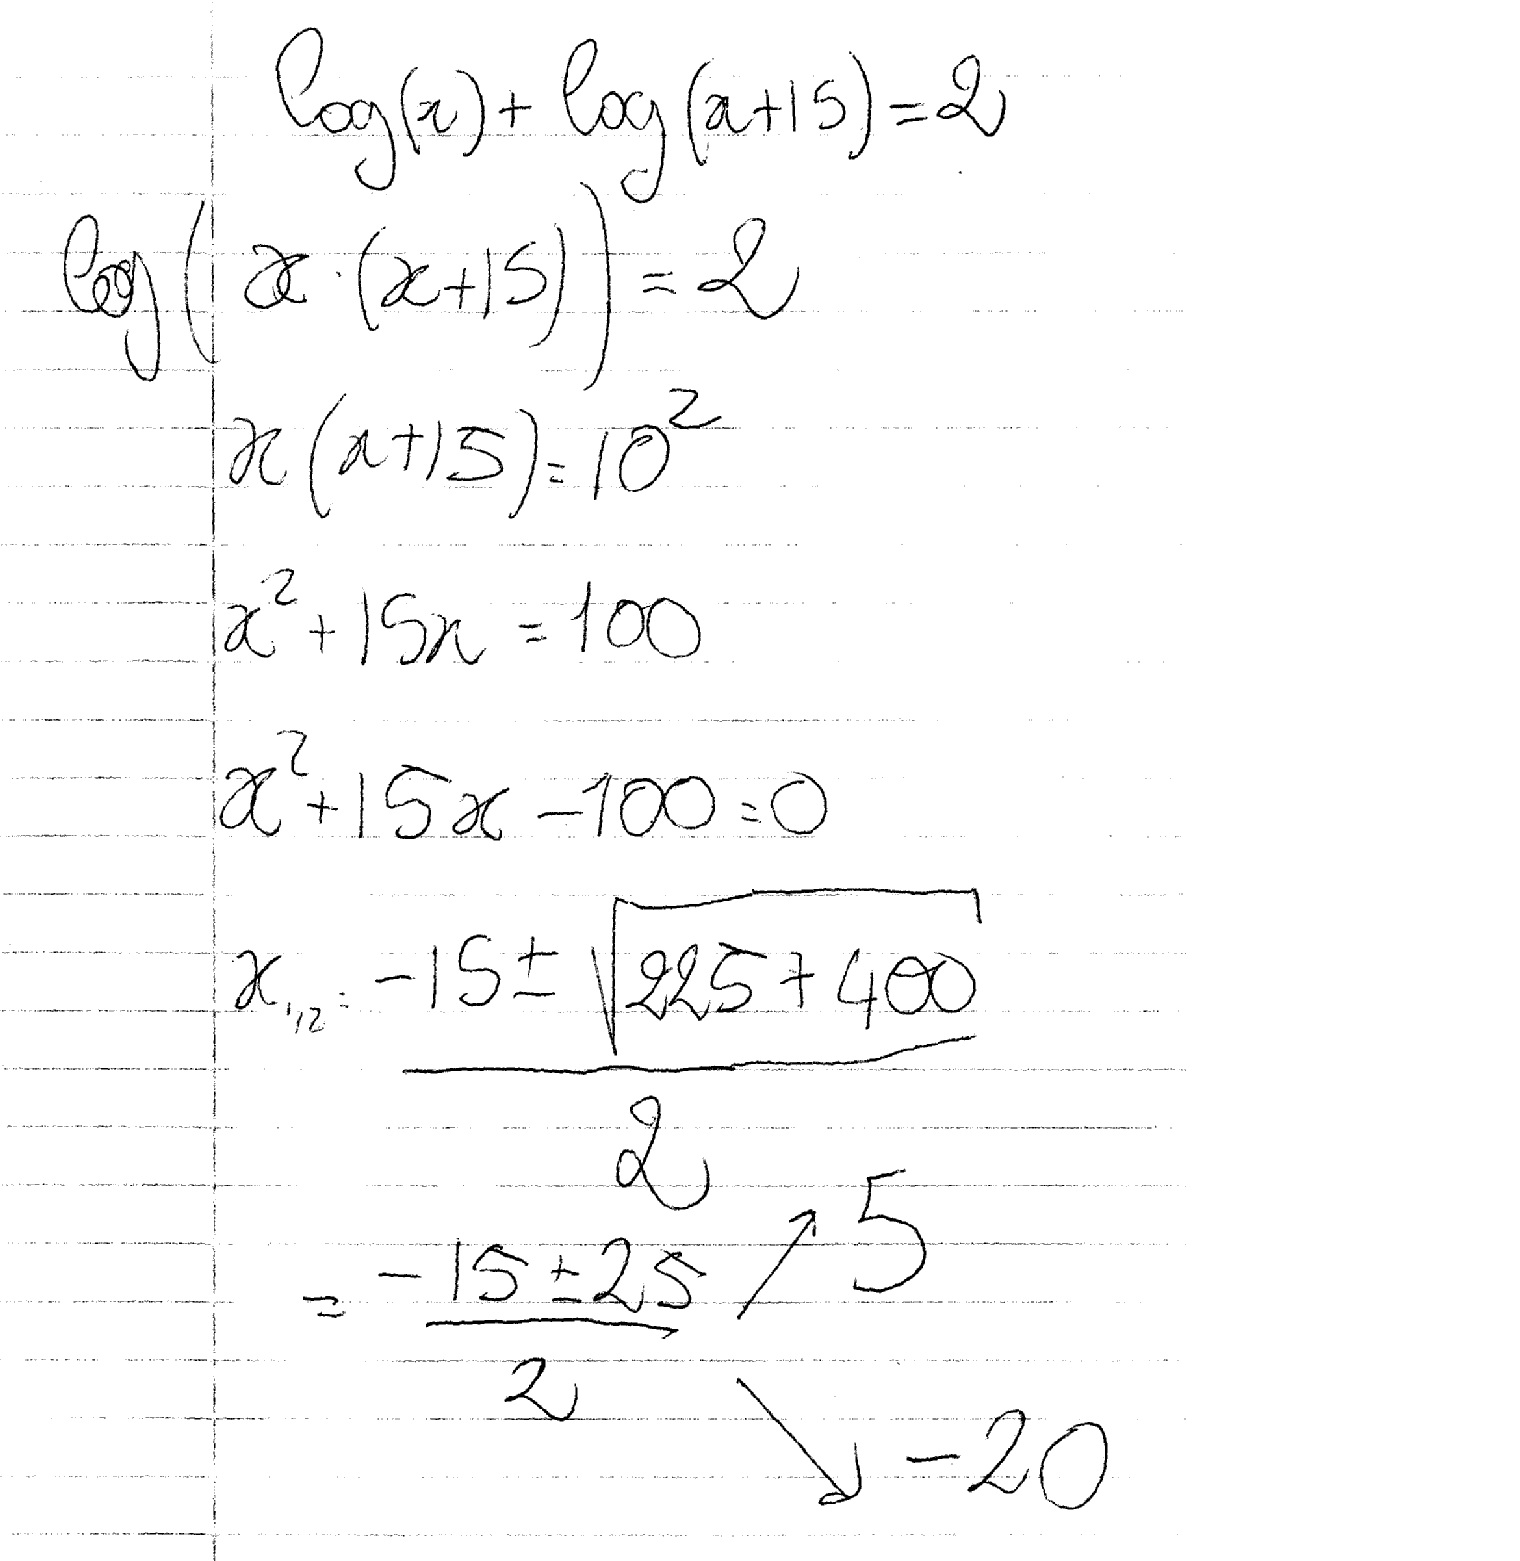 log(x) + log(x+15) = 2
log(x·(x+15)) = 2
x(x+15) = 10²
x² + 15x = 100
x² + 15x - 100 = 0
x₁,₂ = (-15 ± √(225 + 400)) / 2
= (-15 ± 25) / 2 ↗ 5
↘ -20